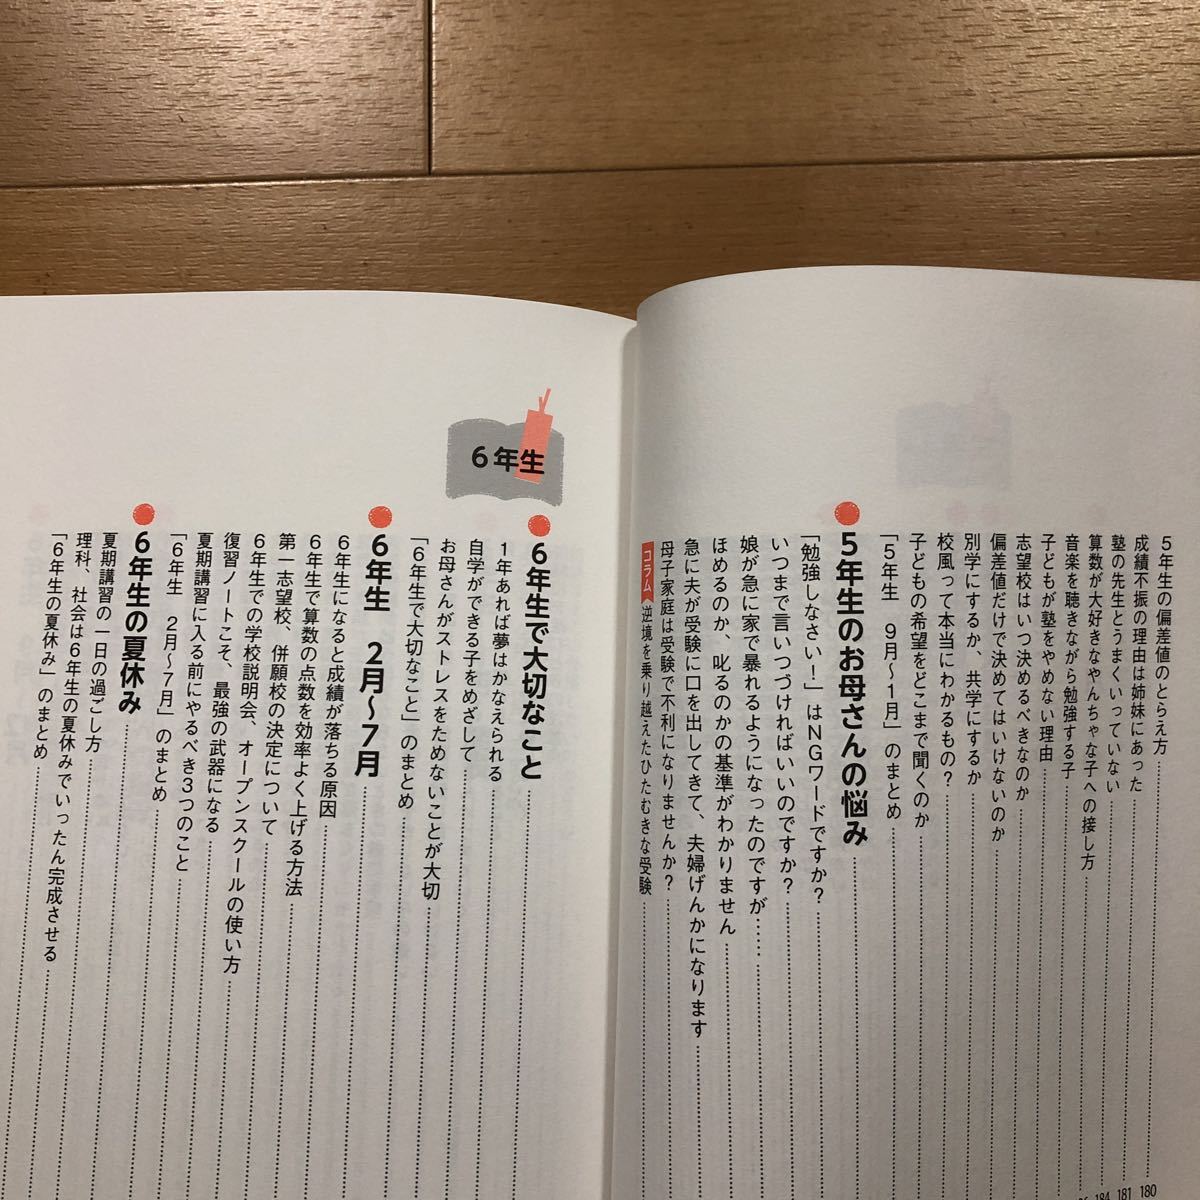 5年生の偏差値のとらえ方
成績不振の理由は姉妹にあった
塾の先生とうまくいっていない
算数が大好きなやんちゃな子への接し方
音楽を聴きながら勉強する子
子どもが塾をやめない理由
志望校はいつ決めるべきなのか
偏差値だけで決めてはいけないのか
別学にするか、共学にするか
校風って本当にわかるもの?
子どもの希望をどこまで聞くのか
「5年生 9月〜1月」のまとめ
5年生のお母さんの悩み
「勉強しなさい!」はNGワードですか?
いつまで言いつづければいいのですか?
娘が急に家で暴れるようになったのですが……
ほめるのか、叱るのかの基準がわかりません
急に夫が受験に口を出してきて、夫婦げんかになります
母子家庭は受験で不利になりませんか?
コラム 逆境を乗り越えたひたむきな受験
184 181 180
6年生
6年生で大切なこと
1年あれば夢はかなえられる
自学ができる子をめざして
お母さんがストレスをためないことが大切
「6年生で大切なこと」のまとめ
6年生 2月〜7月
6年生になると成績が落ちる原因
6年生で算数の点数を効率よく上げる方法
第一志望校、併願校の決定について
6年生での学校説明会、オープンスクールの使い方
復習ノートこそ、最強の武器になる
夏期講習に入る前にやるべき3つのこと
「6年生 2月〜7月」のまとめ
6年生の夏休み
夏期講習の一日の過ごし方
理科、社会は6年生の夏休みでいったん完成させる
「6年生の夏休み」のまとめ